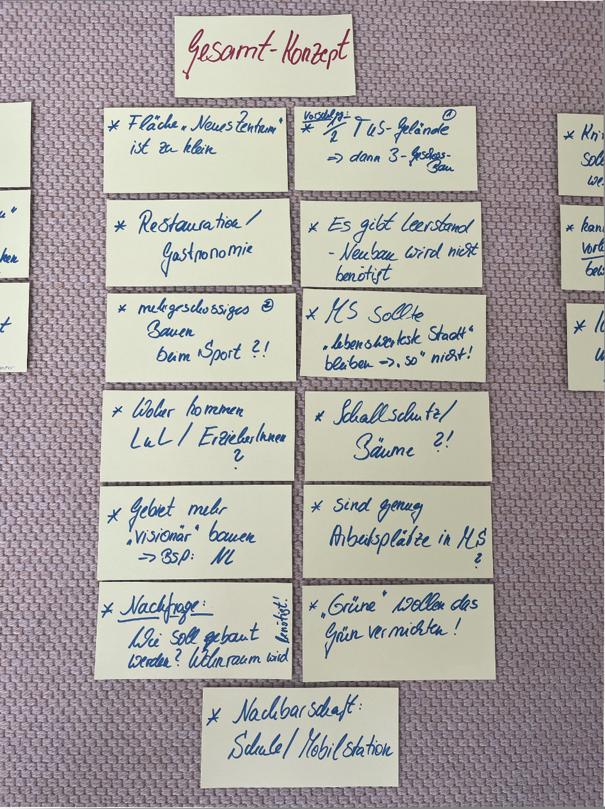 Gesamt-Konzept
* Fläche „Neues Zentrum"
ist zu klein
Vorschlag: ①
* 1/2 TuS-Gelände
⇒ dann 3-Geschoss-
Bau
* Restauration/
Gastronomie
* Es gibt Leerstand
- Neubau wird nicht
benötigt
* mehrgeschossiges ②
Bauen
beim Sport ?!
* MS sollte
„lebenswerteste Stadt"
bleiben -> „so" nicht!
* Woher kommen
LuL / ErzieherInnen
?
* Schallschutz/
Bäume ?!
* Gebiet mehr
„visionär" bauen
-> BSP: NL
* sind genug
Arbeitsplätze in MS
?
* Nachfrage:
Wie soll gebaut
werden? Wohnraum wird
benötigt!
* „Grüne" wollen das
Grün vernichten!
* Nachbarschaft:
Schule/Mobilstation